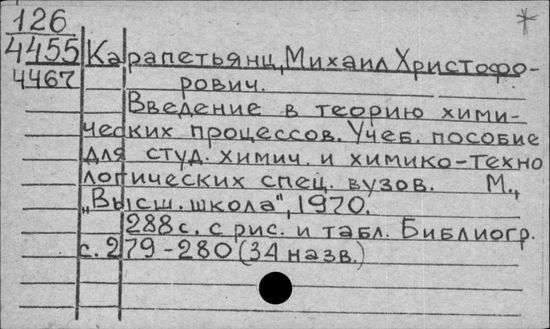 126
4455
4467
*
Карапетьянц, Михаил Христофо-
рович.
Введение в теорию хими-
ческих процессов. Учеб. пособие
для студ. химич. и химико-техно
логических спец. вузов. М.,
„Высш. школа", 1970.
288с. с рис. и табл. Библиогр.
с. 279-280 (34 назв.)